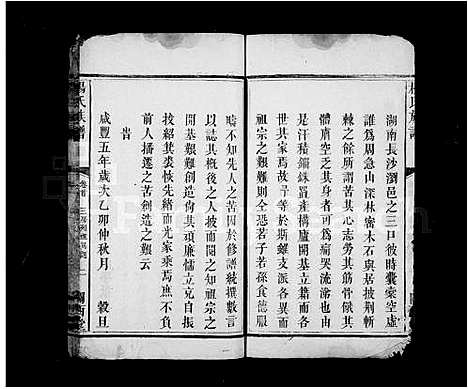 湖南長沙瀏邑之三口彼時囊橐空虛
誰爲周急山深林密木石與居披荆斬
棘之餘所謂苦其心志勞其筋骨餓其
體膚空乏其身者可爲痛哭流涕也由
是汗積錙銖置產構廬開基立籍而各
世其家焉故子等於斯螽
祖宗之艱難則全恐若子若孫食德服
時不知先人之苦因於修譜統撰數言
以誌其概後之人披而閱之知祖宗之
開基艱難創造尙其頑廉懦立克自振
拔紹其裘恢先緒而光家乘焉庶不負
前人播遷之苦創造之艱云
旹
咸豐五年歲次乙卯仲秋月 穀旦
楊氏族譜
卷首